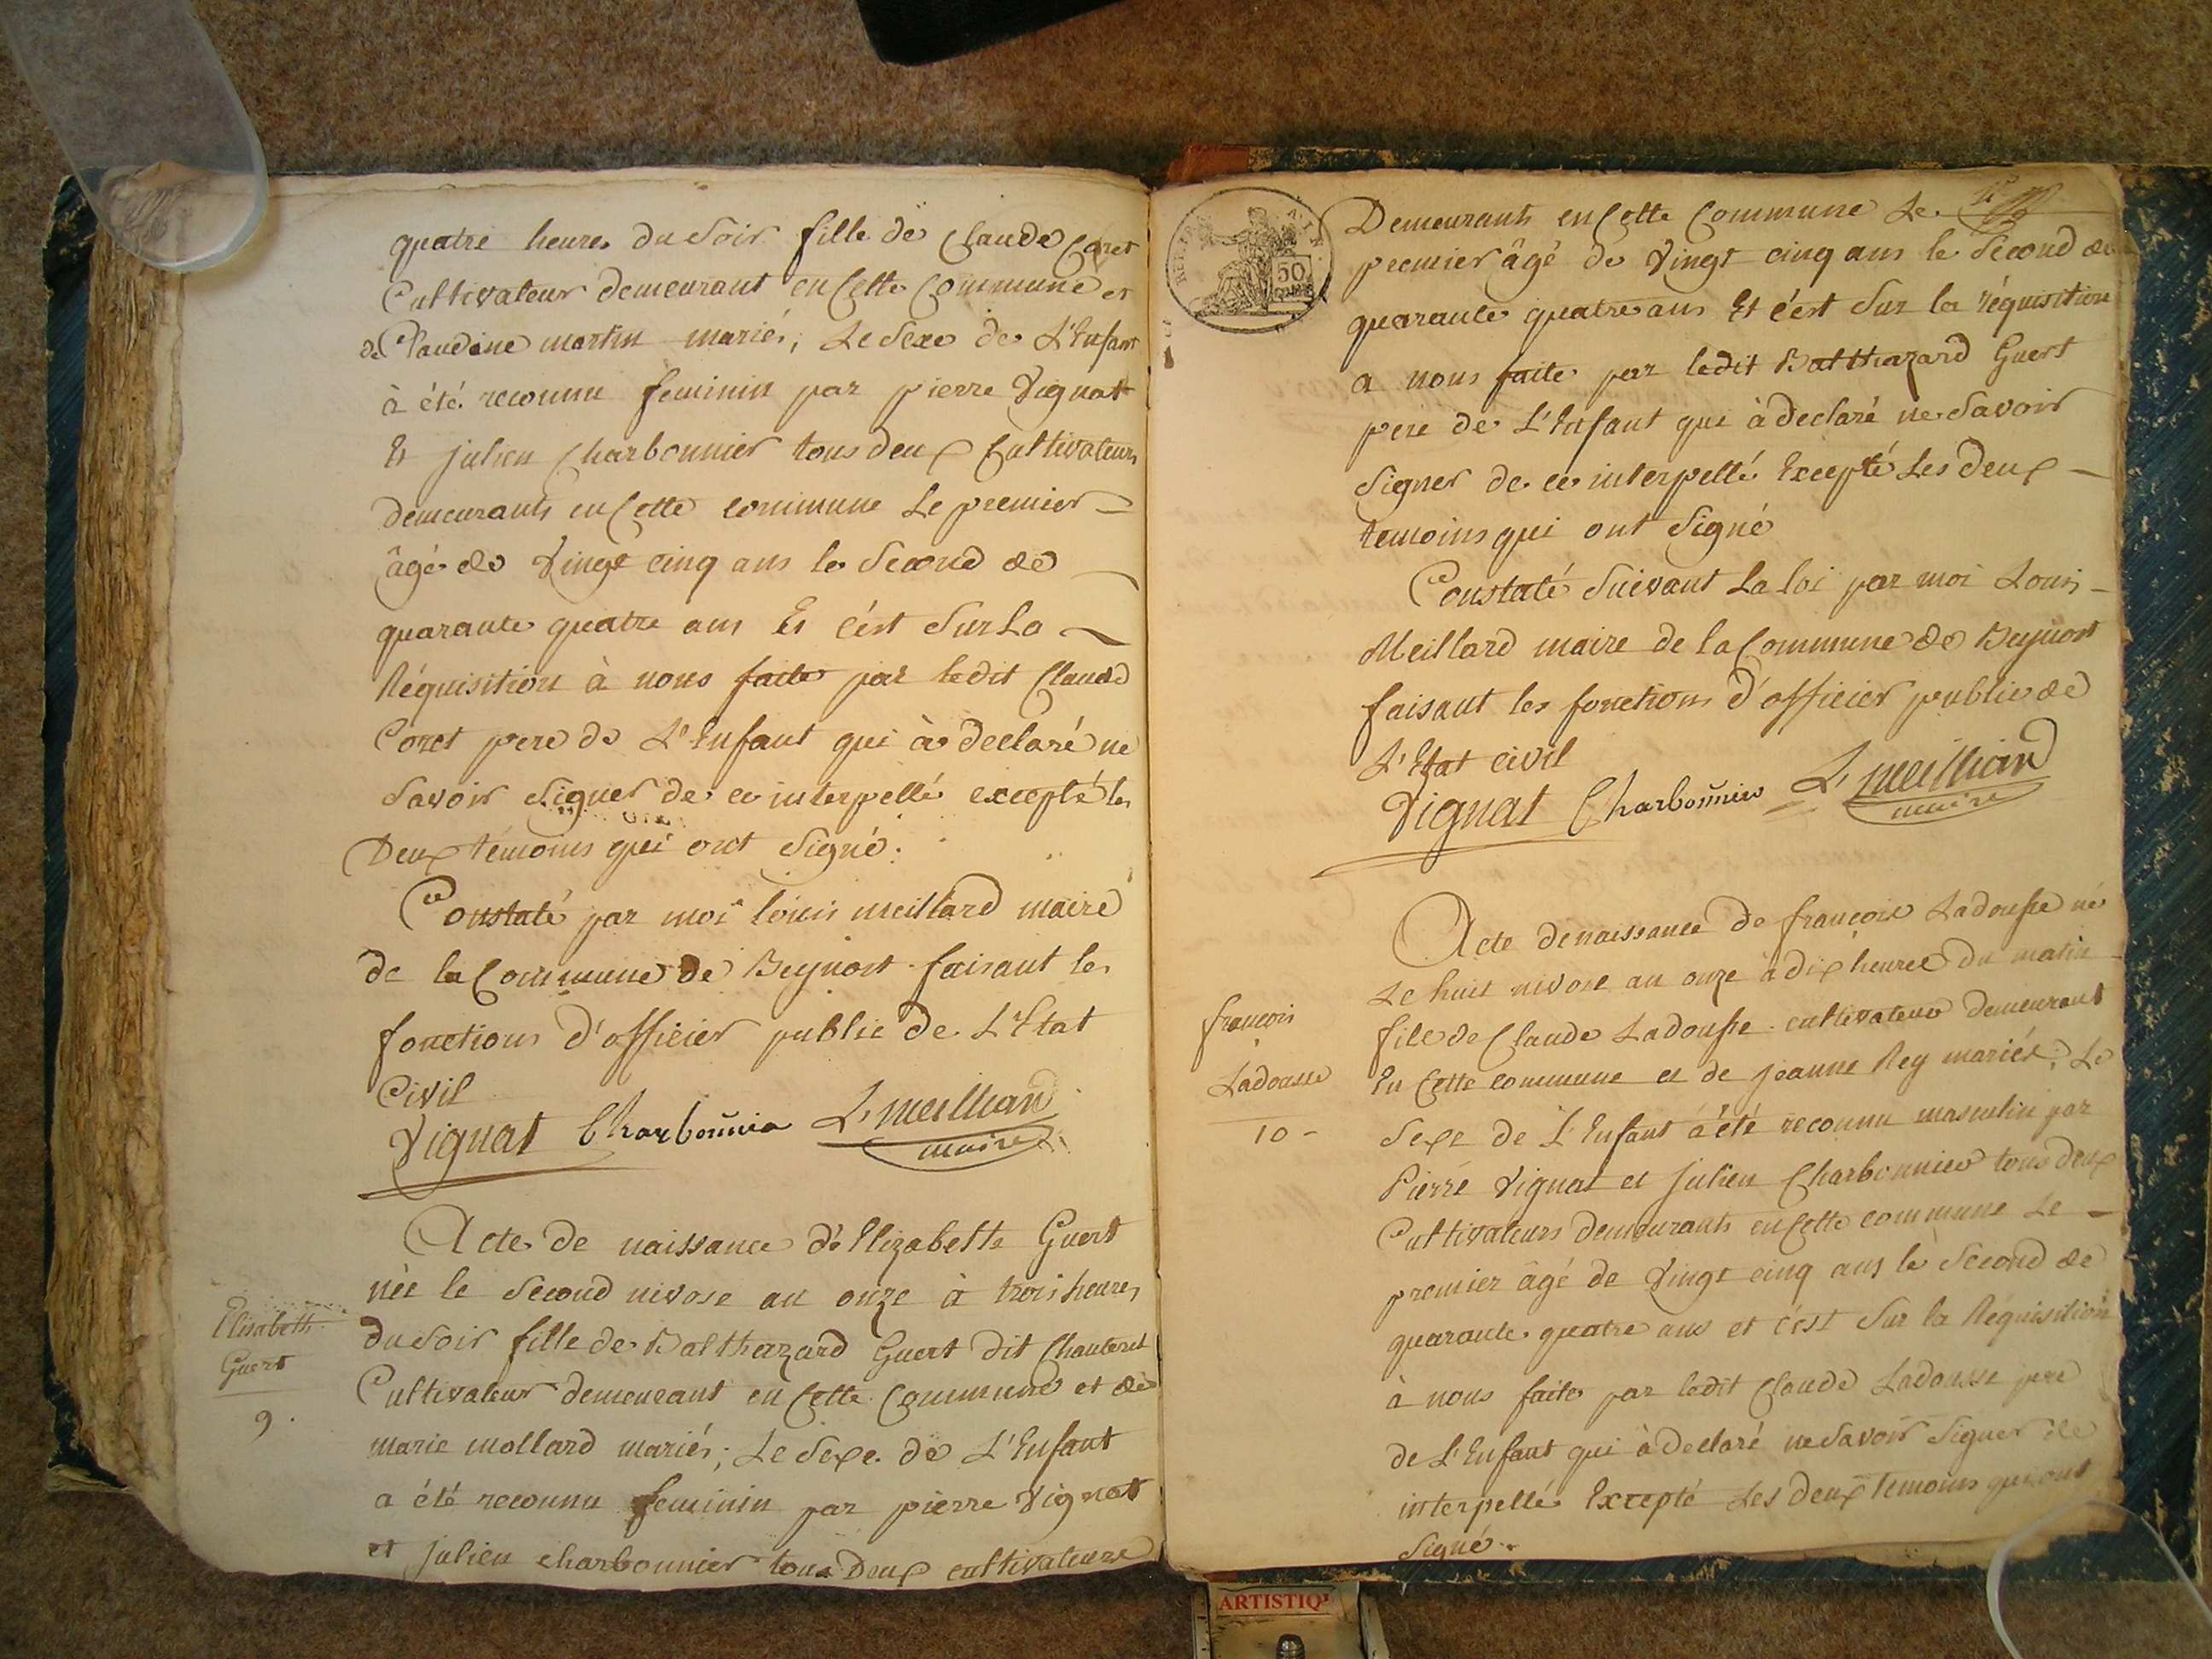 quatre heures du Soir fille de Claude Coret
Cultivateur demeurant en Cette Commune et
de Claudine martin mariés, Le Sexe de L'Enfant
à été reconnu feminin par pierre Vignat
Et julien Charbonnier tous deux Cultivateurs
demeurants en Cette commune Le premier
âgé de Vingt cinq ans le Second de
quarante quatre ans Et c'est Sur La
Réquisition à nous faite par ledit Claude
Coret pere de L'Enfant qui à declaré ne
Savoir Signer de ce interpellé excepté les
Deux témoins qui ont Signé.
Constaté par moi louis meillard maire
de la Commune de Beynost faisant les
fonctions d'officier public de L'Etat
Civil
Vignat Charbonnier L. meilliard
maire
Acte de naissance d'Elizabeth Guert
née le Second nivose an onze à trois heures
du Soir fille de Balthazard Guert dit Chanteret
Cultivateur demeurant en Cette Commune et de
marie mollard mariés; Le Sexe de L'Enfant
a été reconnu feminin par pierre Vignat
et julien charbonnier tous Deux cultivateurs
Elisabeth
Guert
9.
50
Demeurants en Cette Commune Le
premier âgé de Vingt cinq ans le Second de
quarante quatre ans Et c'est Sur la réquisition
a nous faite par ledit Balthazard Guert
pere de L'Enfant qui à declaré ne Savoir
Signer de ce interpellé Excepté Les deux
temoins qui ont Signé
Constaté Suivant La loi par moi Louis
Meillard maire de la Commune de Beynost
faisant les fonctions d'officier public de
L'Etat civil
Vignat Charbonnier L. meilliard
maire
Acte de naissance de françois Ladousse né
Le huit nivose an onze à dix heures du matin
fils de Claude Ladousse cultivateur demeurant
En Cette commune et de jeanne Rey mariés. Le
Sexe de L'Enfant à été reconnu masculin par
Pierre Vignat et julien Charbonnier tous deux
Cultivateurs demeurants en Cette commune Le
premier âgé de Vingt cinq ans le Second de
quarante quatre ans et c'est Sur la Réquisition
à nous faite par ledit Claude Ladousse pere
de L'Enfant qui à declaré ne Savoir Signer de
interpellé Excepté Les deux temoins qui ont
Signé.
françois
Ladousse
10
ARTISTIQ